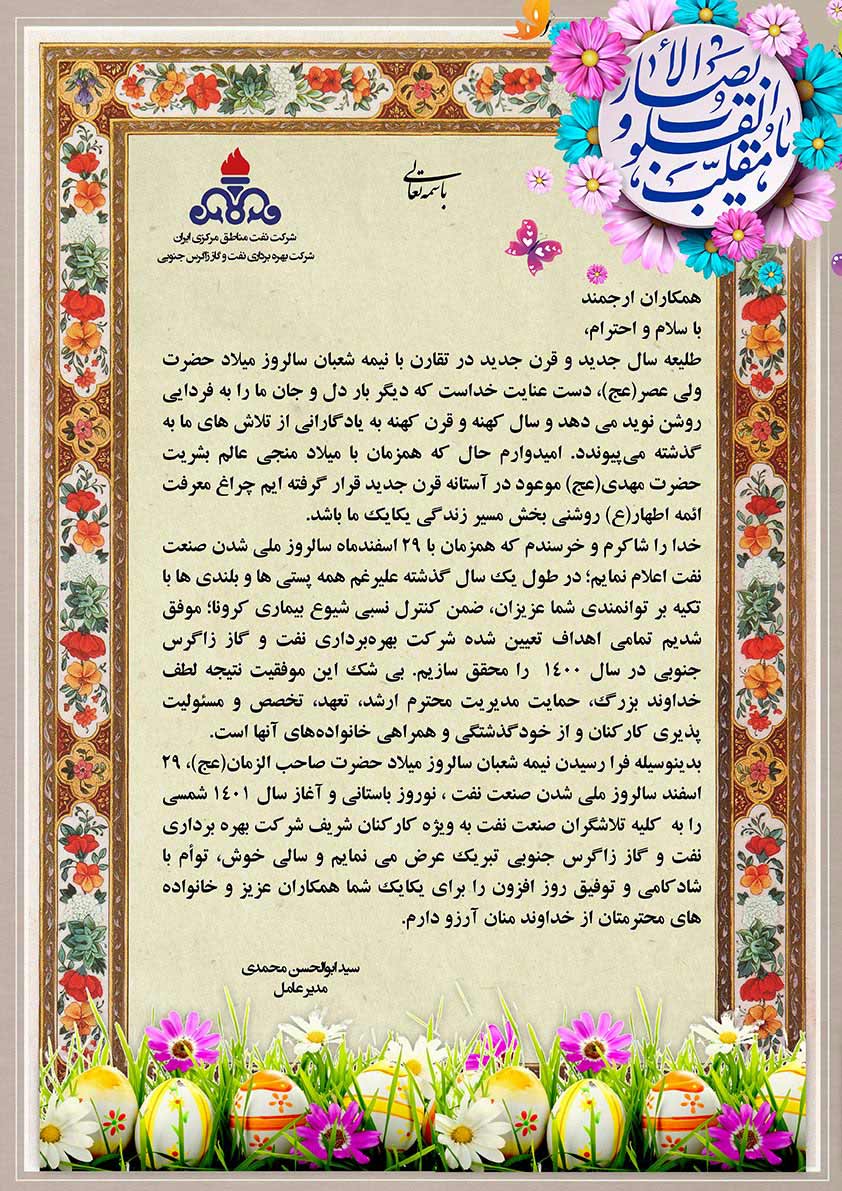 یا مقلب القلوب و الأبصار
باسمه تعالی
شرکت نفت مناطق مرکزی ایران
شرکت بهره برداری نفت و گاز زاگرس جنوبی
همکاران ارجمند
با سلام و احترام،
طلیعه سال جدید و قرن جدید در تقارن با نیمه شعبان سالروز میلاد حضرت
ولی عصر(عج)، دست عنایت خداست که دیگر بار دل و جان ما را به فردایی
روشن نوید می دهد و سال کهنه و قرن کهنه به یادگارانی از تلاش های ما به
گذشته می‌پیوندد. امیدوارم حال که همزمان با میلاد منجی عالم بشریت
حضرت مهدی(عج) موعود در آستانه قرن جدید قرار گرفته ایم چراغ معرفت
ائمه اطهار(ع) روشنی بخش مسیر زندگی یکایک ما باشد.
خدا را شاکرم و خرسندم که همزمان با ۲۹ اسفندماه سالروز ملی شدن صنعت
نفت اعلام نمایم؛ در طول یک سال گذشته علیرغم همه پستی ها و بلندی ها با
تکیه بر توانمندی شما عزیزان، ضمن کنترل نسبی شیوع بیماری کرونا؛ موفق
شدیم تمامی اهداف تعیین شده شرکت بهره‌برداری نفت و گاز زاگرس
جنوبی در سال ۱۴۰۰ را محقق سازیم. بی شک این موفقیت نتیجه لطف
خداوند بزرگ، حمایت مدیریت محترم ارشد، تعهد، تخصص و مسئولیت
پذیری کارکنان و از خودگذشتگی و همراهی خانواده‌های آنها است.
بدینوسیله فرا رسیدن نیمه شعبان سالروز میلاد حضرت صاحب الزمان(عج)، ۲۹
اسفند سالروز ملی شدن صنعت نفت ، نوروز باستانی و آغاز سال ۱۴۰۱ شمسی
را به کلیه تلاشگران صنعت نفت به ویژه کارکنان شریف شرکت بهره برداری
نفت و گاز زاگرس جنوبی تبریک عرض می نمایم و سالی خوش، توأم با
شادکامی و توفیق روز افزون را برای یکایک شما همکاران عزیز و خانواده
های محترمتان از خداوند منان آرزو دارم.
سید ابوالحسن محمدی
مدیر عامل